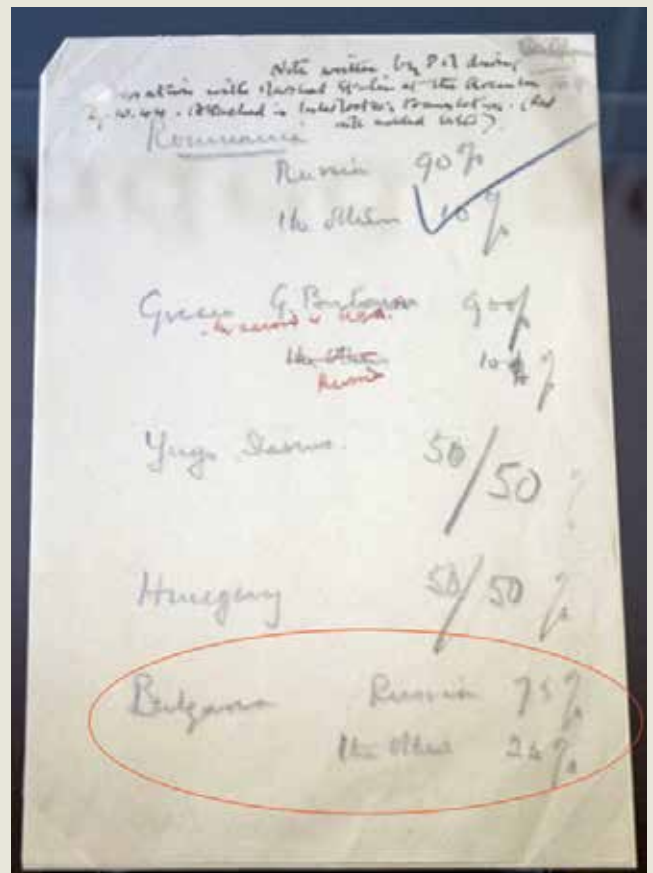 Note written by P.M during
with Marshal Stalin at the
10.44. Attached is Interpreter's translation. (Red
ink added later)
Roumania
Russia 90%
the others 10%
Greece G. Britain 90%
in accord w USA.
the others 10%
Russia
Yugo Slavia. 50/50 %
Hungary 50/50 %
Bulgaria Russia 75%
the others 25%